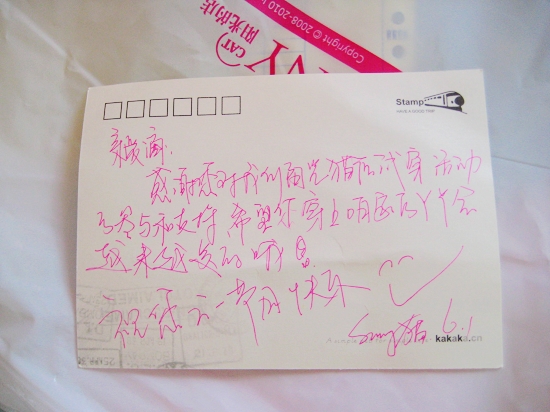 Copyright © 2008-2010
阳光的店
CAT
VY
Stamp
HAVE A GOOD TIME
亲爱滴:
感谢您对我们阳光猫 试穿活动
的参与和支持 希望你穿上咱家的丫丫会
越来越美的哦!
祝您六一节日快乐
Sunny猫 6.1
kakaka.cn